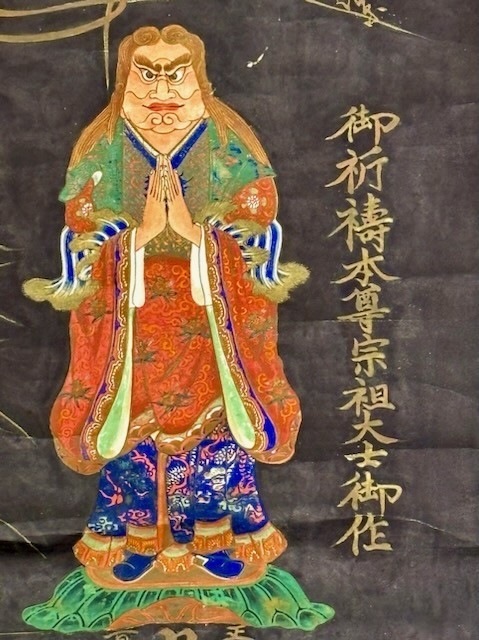 御祈禱本尊宗祖大士御作